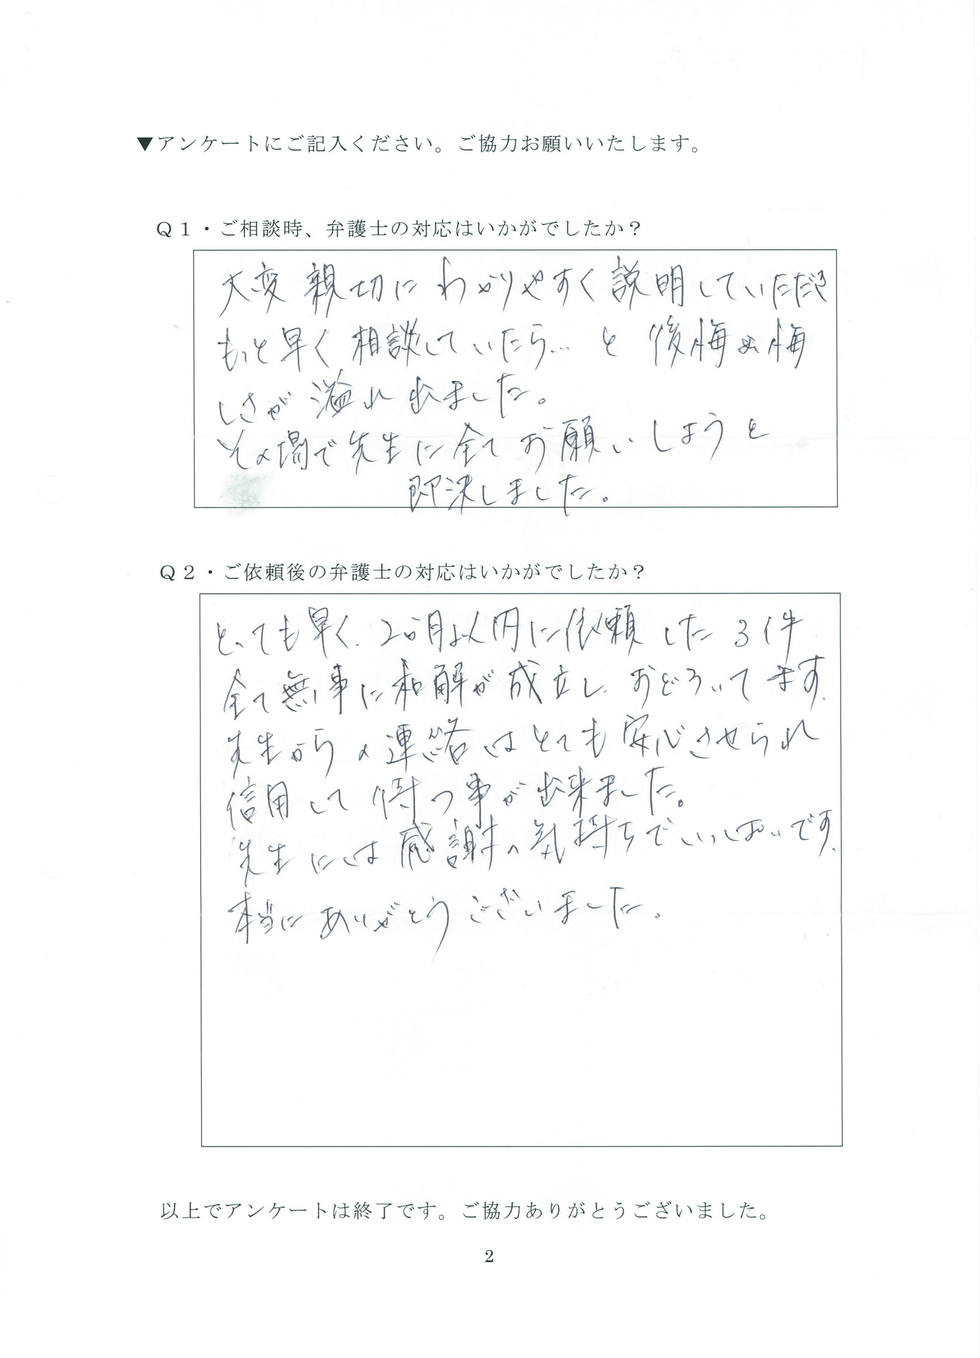 ▼アンケートにご記入ください。ご協力お願いいたします。
Ｑ１・ご相談時、弁護士の対応はいかがでしたか？
大変親切にわかりやすく説明していただき
もっと早く相談していたら… と後悔や悔
しさが溢れ出ました。
その場で先生に全てお願いしようと
即決しました。
Ｑ２・ご依頼後の弁護士の対応はいかがでしたか？
とっても早く、2ヶ月以内に依頼した3件
全て無事に和解が成立し、おどろいてます。
先生からの連絡はとても安心させられ
信用して待つ事が出来ました。
先生には感謝の気持ちでいっぱいです。
本当にありがとうございました。
以上でアンケートは終了です。ご協力ありがとうございました。
2